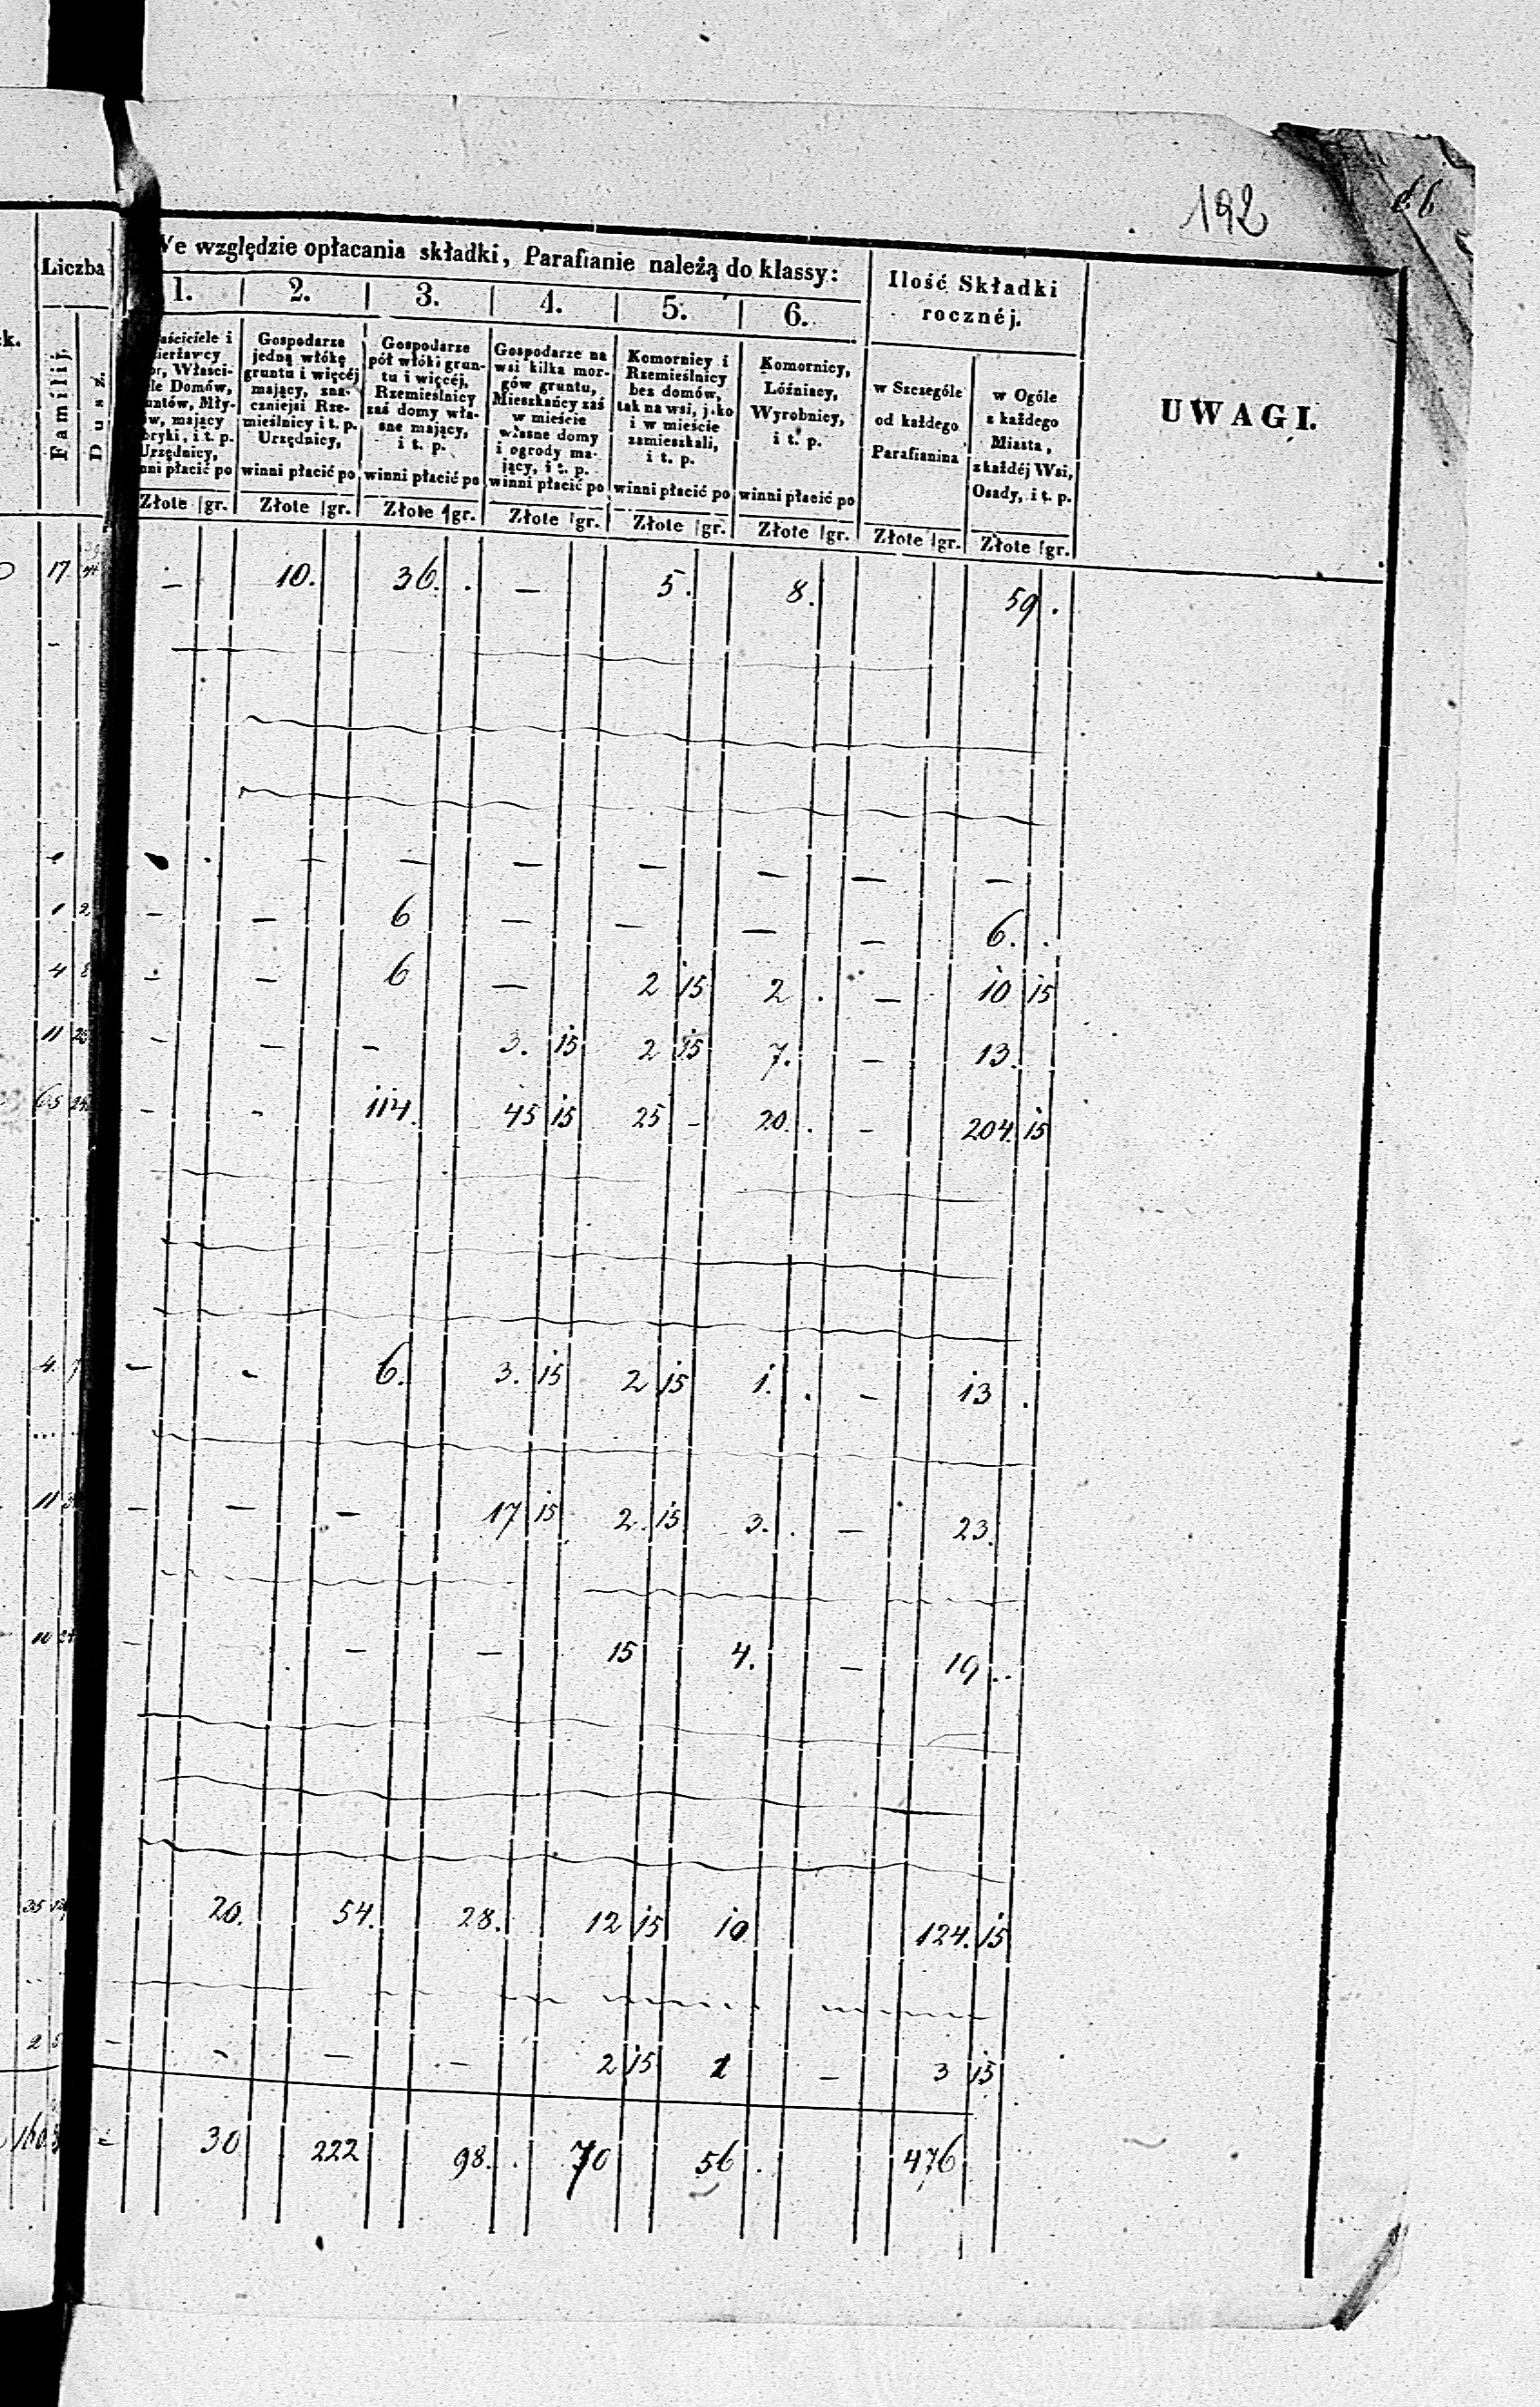 192
Liczba
Familij.
Dusz.
We względzie opłacania składki, Parafianie należą do klassy:
Ilość Składki rocznéj.
UWAGI.
1. 2. 3. 4. 5. 6.
Gospodarze jedną włókę gruntu i więcéj mający, znaczniejsi Rzemieślnicy i t. p. Urzędnicy, winni płacić po
Gospodarze pół włóki gruntu i więcéj, Rzemieślnicy zaś domy własne mający, i t. p. winni płacić po
Gospodarze na wsi kilka morgów gruntu, Mieszkańcy zaś w mieście własne domy i ogrody mający, i t. p. winni płacić po
Komornicy i Rzemieślnicy bez domów, tak na wsi, jako i w mieście zamieszkali, i t. p. winni płacić po
Komornicy, Lóźniacy, Wyrobnicy, i t. p. winni płacić po
w Szczególe od każdego Parafianina
w Ogóle z każdego Miasta, z każdéj Wsi, Osady, i t. p.
Złote gr. Złote gr. Złote gr. Złote gr. Złote gr. Złote gr. Złote gr. Złote gr.
17 — 10. 36. . — 5. 8. 59 .
— — — — — — —
1 2 — — 6 — — — — 6. .
4 8 — — 6 — 2 15 2 . — 10 15
11 — — — 3. 15 2 15 7. — 13.
65 — - 114. 45 15 25 - 20. . — 204. 15
4. 7 — - 6. 3. 15 2 15 1. . — 13 .
11 — — — 17 15 2. 15 3. . — 23.
10 — — — 15 4. — 19 ..
35 20. 54. 28. 12 15 10 124. 15
2 — - — — 2 15 1 — 3 15
160 30 222 98. . 70 56 . 476